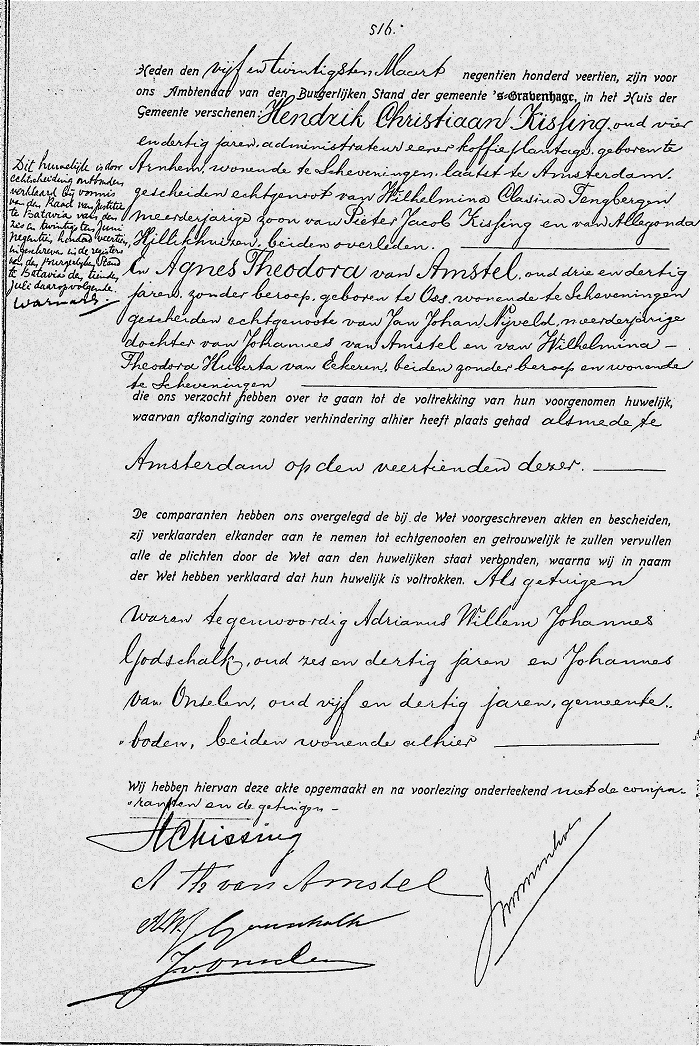 516.
Heden den vijf en twintigsten Maart negentien honderd veertien, zijn voor
ons Ambtenaar van den Burgerlijken Stand der gemeente 's-Gravenhage, in het Huis der
Gemeente verschenen: Hendrik Christiaan Kissing, oud vier
en dertig jaren, administrateur eener koffieplantage, geboren te
Arnhem, wonende te Scheveningen, laatst te Amsterdam,
gescheiden echtgenoot van Wilhelmina Clasina Tengbergen
meerderjarige zoon van Pieter Jacob Kissing en van Allegonda
Hillikhuizen, beiden overleden.
En Agnes Theodora van Amstel, oud drie en dertig
jaren, zonder beroep, geboren te Oss, wonende te Scheveningen
gescheiden echtgenoote van Jan Johan Nijveld, meerderjarige
dochter van Johannes van Amstel en van Wilhelmina
Theodora Huberta van Eckeren, beiden zonder beroep en wonende
te Scheveningen
die ons verzocht hebben over te gaan tot de voltrekking van hun voorgenomen huwelijk,
waarvan afkondiging zonder verhindering alhier heeft plaats gehad alsmede te
Amsterdam op den veertienden dezer.
De comparanten hebben ons overgelegd de bij de Wet voorgeschreven akten en bescheiden,
zij verklaarden elkander aan te nemen tot echtgenooten en getrouwelijk te zullen vervullen
alle de plichten door de Wet aan den huwelijken staat verbonden, waarna wij in naam
der Wet hebben verklaard dat hun huwelijk is voltrokken. Als getuigen
waren tegenwoordig Adrianus Willem Johannes
Godschalk, oud zes en dertig jaren en Johannes
van Onselen, oud vijf en dertig jaren, gemeente-
boden, beiden wonende alhier
Wij hebben hiervan deze akte opgemaakt en na voorlezing onderteekend met de compa-
ranten en de getuigen
HCKissing
A Th van Amstel
AWJ Godschalk
J.v.Onselen
Dit huwelijk is door
echtscheiding ontbonden
verklaard bij vonnis
van den Raad van Justitie
te Batavia van den
zes en twintigsten Juni
negentien honderd veertien,
ingeschreven in de registers
van den Burgerlijken Stand
te Batavia den tienden
Juli daaropvolgende.